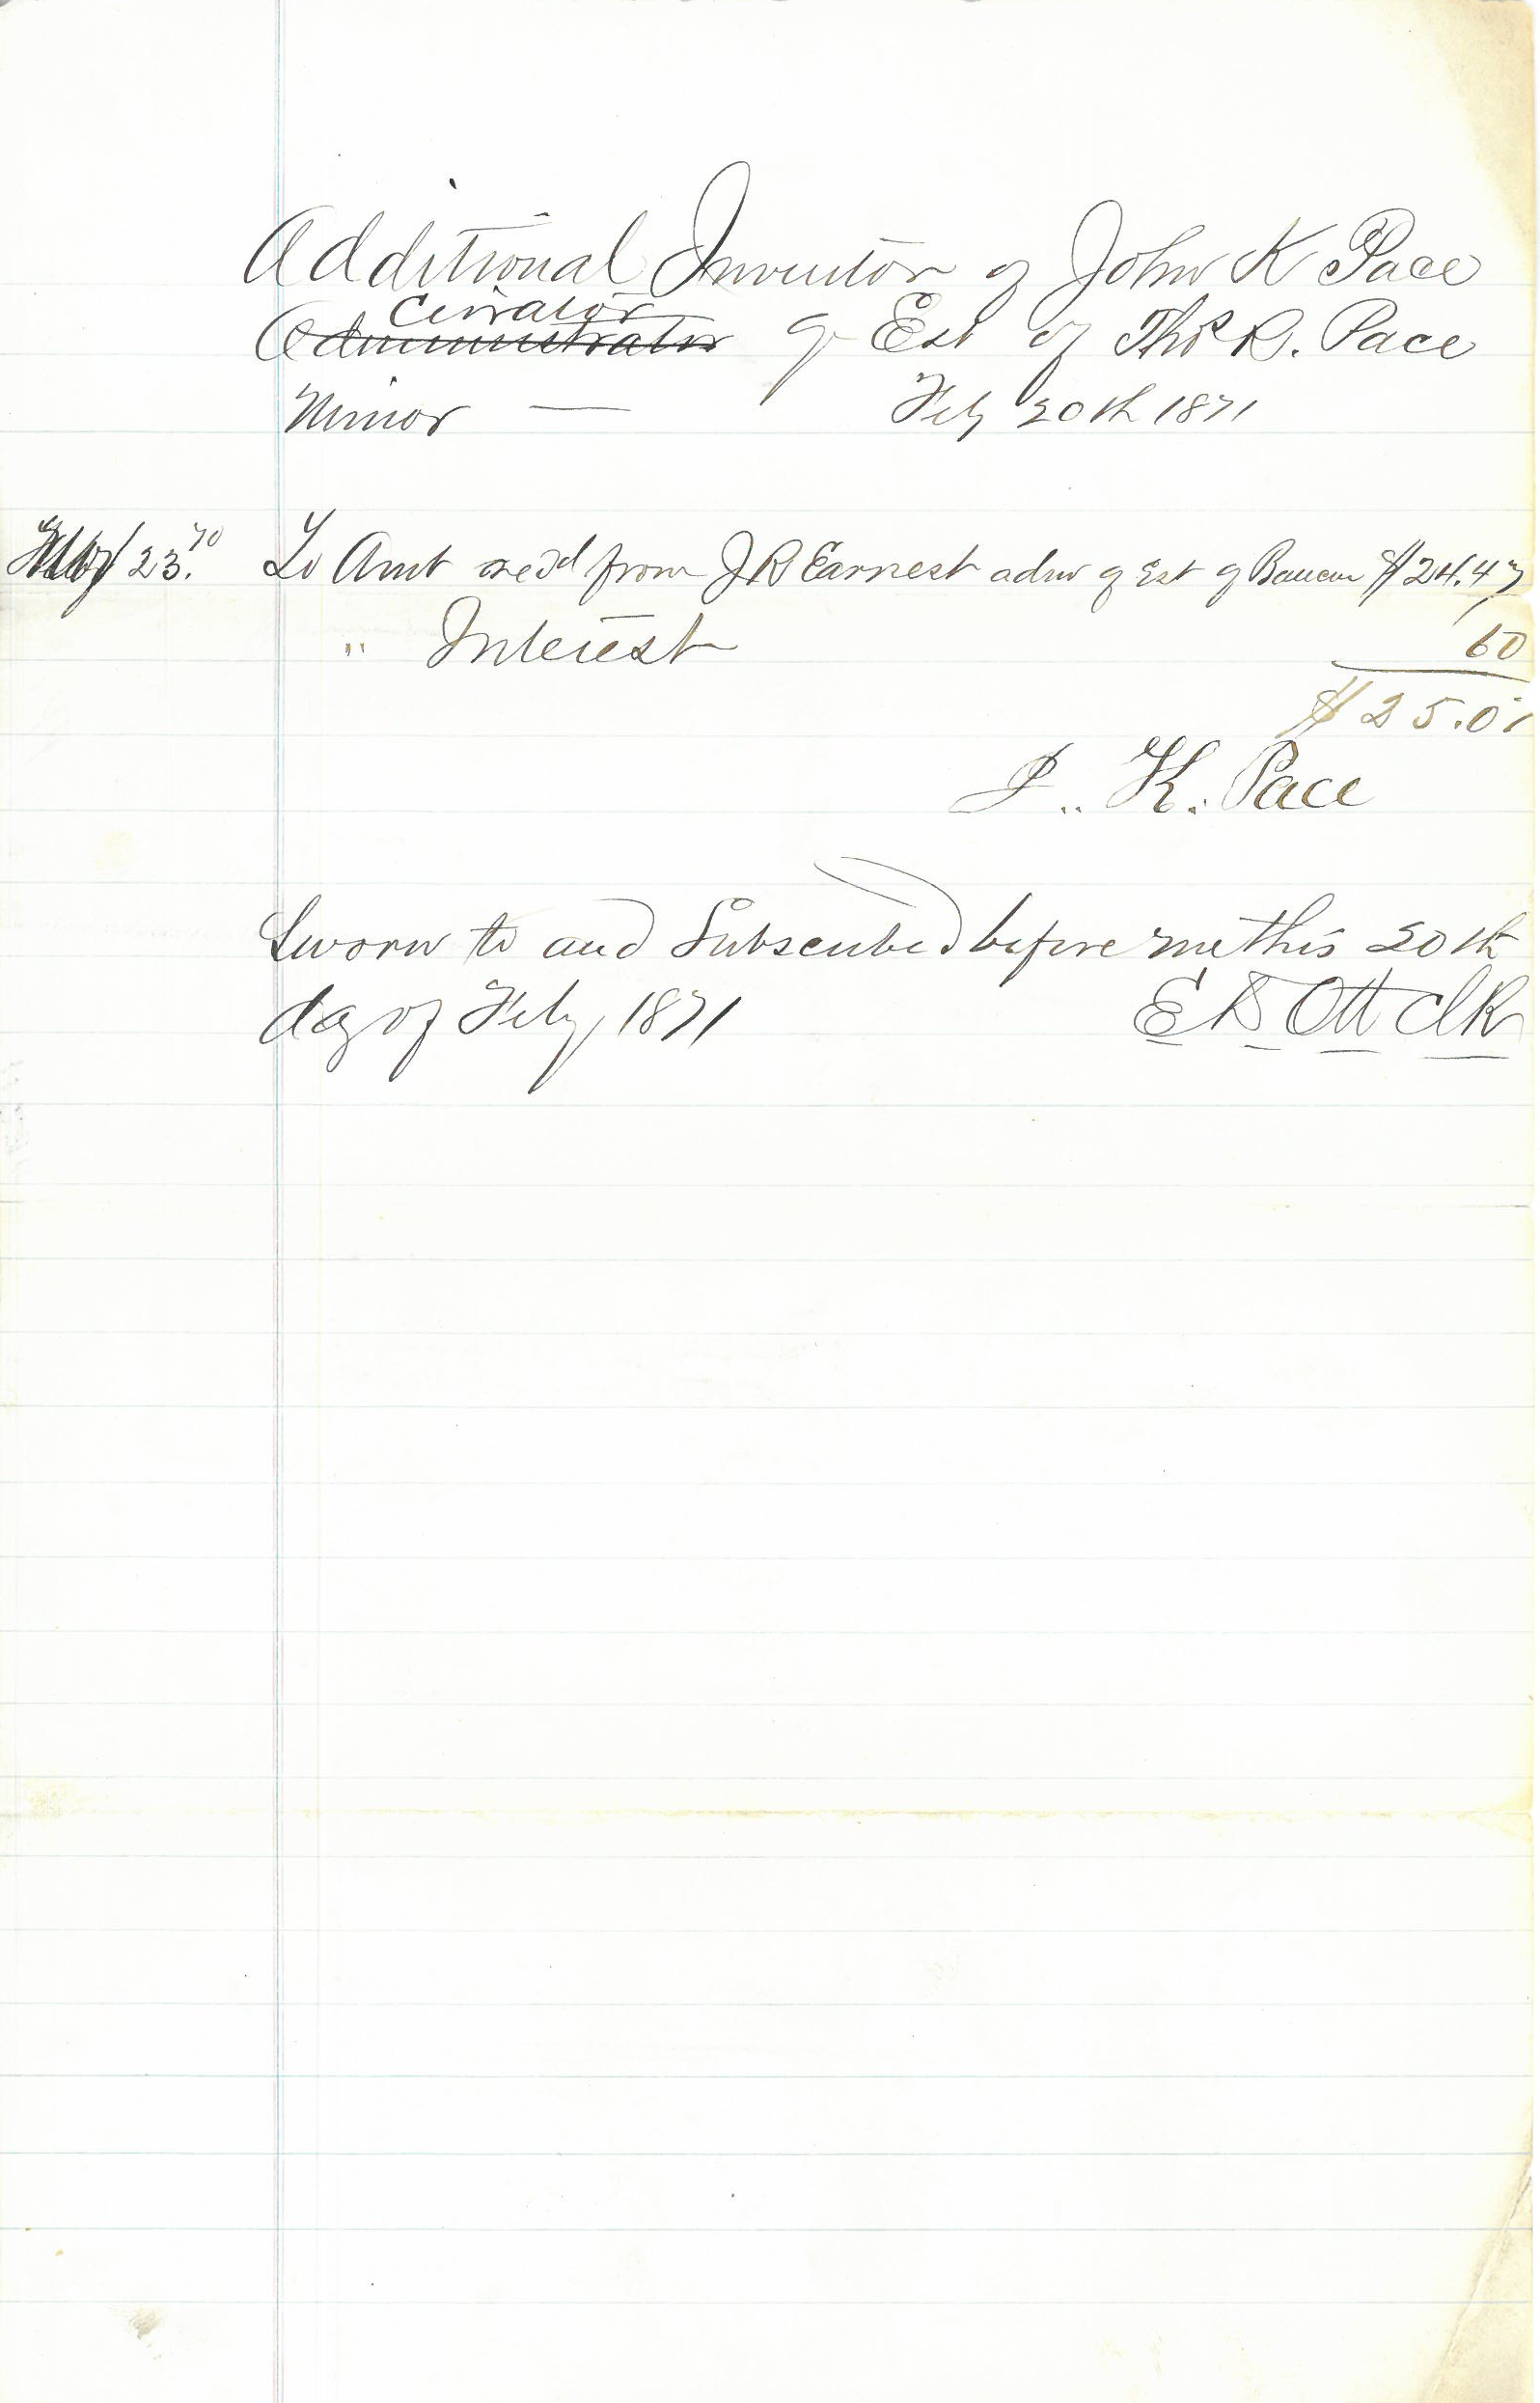 Additional Inventor of John K Pace
Curator
Administrator of Est of Thos R. Pace
Minor — Feby 20th 1871
23. 70 To Amt rec'd from J R Earnest admr of Est of $24.47
" Interest 60
$25.07
J.. K. Pace
Sworn to and Subscribed before me this 20th
day of Feby 1871 E D Ott Clk